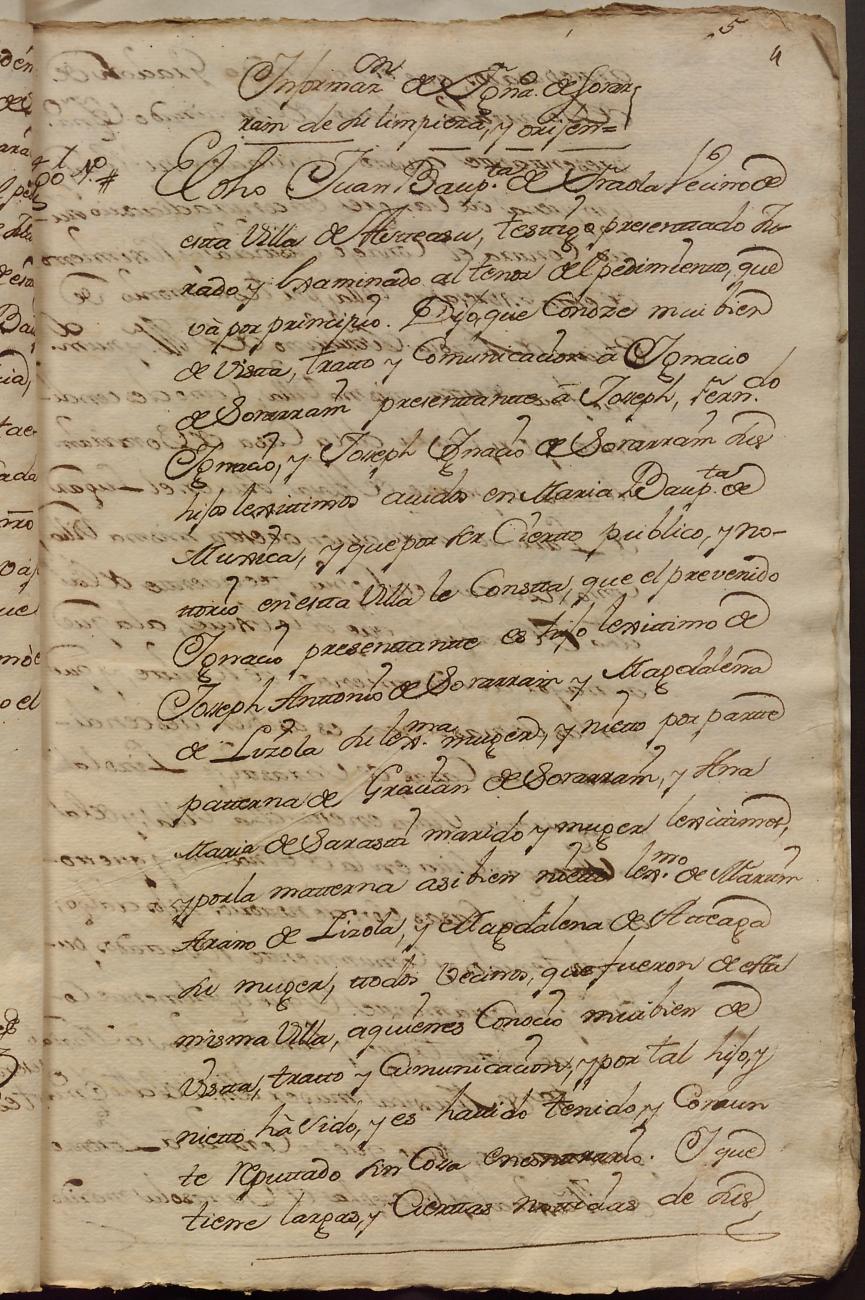 5
4
Informaz.on de Ygna.o de Sorar
rain de su limpieza, y orijen=
t.go 1.o # El dho Juan Baup.ta de Yraola Vecino de
esta Villa de Asteasu, testigo presentado Ju-
rado y Examinado al tenor del pedimiento, que
và por principio. Dijo, que Conoze mui bien
de Vista, tratto y Comunicacion â Ygnacio
de Sorarrain presentante â Joseph, Fern.do
Ygnacio, y Joseph Ygnacio de Sorarrain sus
hijos lexitimos avidos en Maria Baup.ta de
Muxica, y que por ser Cierto publico, y no-
ttorio en esta Villa le Constta, que el prevenido
Ygnacio presentante es hijo lexitimo de
Joseph Antonio de Sorarrain y Magdalena
de Lizola su lex.ma muger, y nieto por partte
patterna de Gravian de Sorarrain, y Ana
Maria de Sarasti marido y muger lexitimos,
y por la matterna asi bien nieto lex.mo de Martin
Arano de Lizola, y Magdalena de Atteaga
su muger, ttodos Vecinos, que fueron de esta
misma Villa, a quienes Conocio mui bien de
Vista, tratto y Comunicacion, y por tal hijo, y
nieto hà sido, y es havido tenido, y Comun
te reputtado sin Cosa encontrario. Y que
tiene largas, y Ciertas notticias de sus